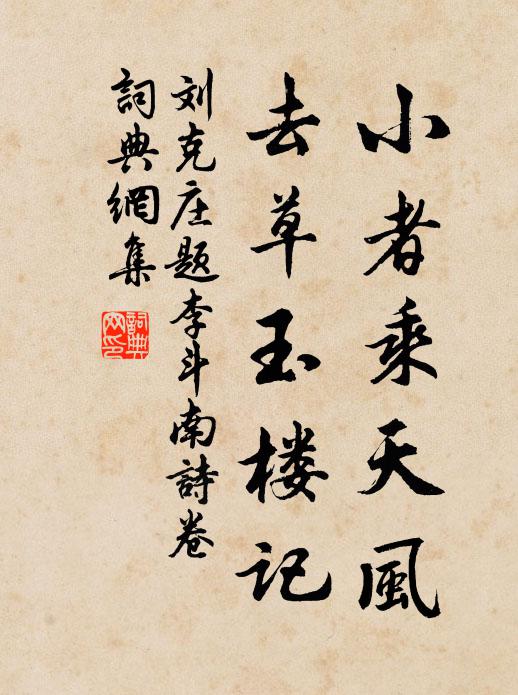 小者乘天風
去草玉楼记
刘克庄题李斗南詩卷
詞典網集
詞典網印